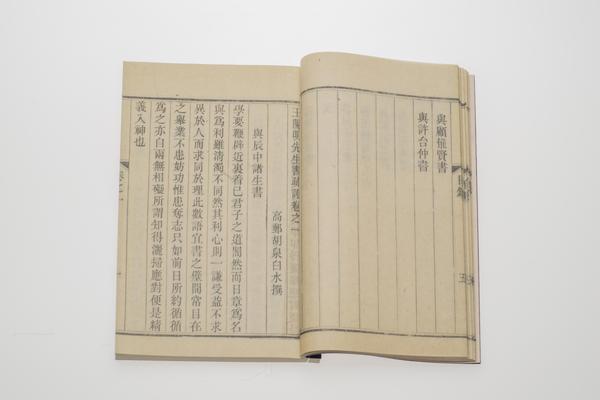 與顧惟賢書
與許台仲書
目錄
五
王陽明先生書疏證卷之一
高郵胡泉白水撰
與辰中諸生書
學要鞭辟近裏着己君子之道闇然而日章爲名
與爲利雖清濁不同然其利心則一謙受益不求
異於人而求同於理此數語宜書之壁間常目在
之舉業不患妨功惟患奪志只如前日所約循循
爲之亦自兩無相礙所謂知得灑掃應對便是精
義入神也
卷之一